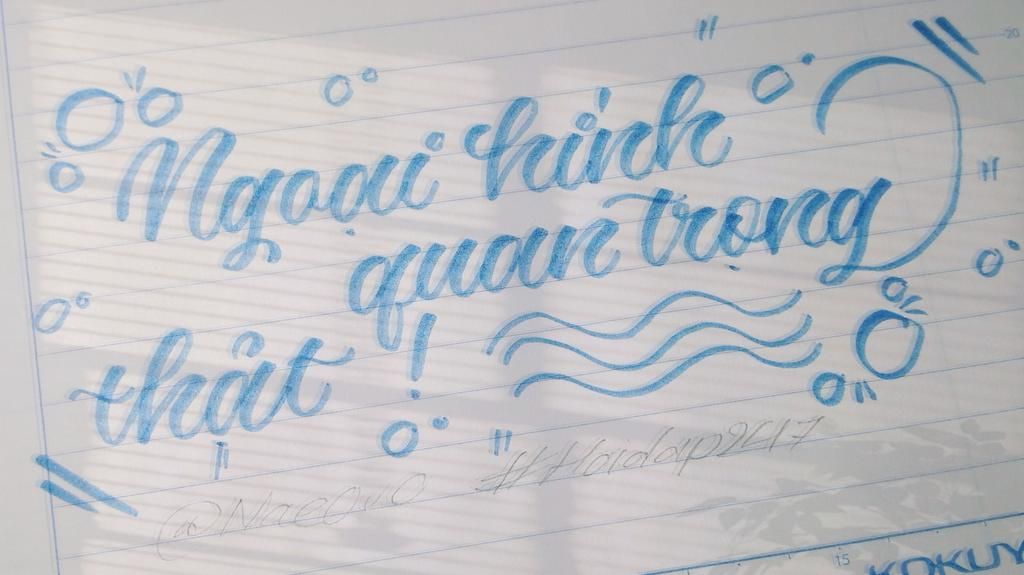 Ngoại hình
quan trọng
thật !
#Hoidap247
20
15
KOKUY